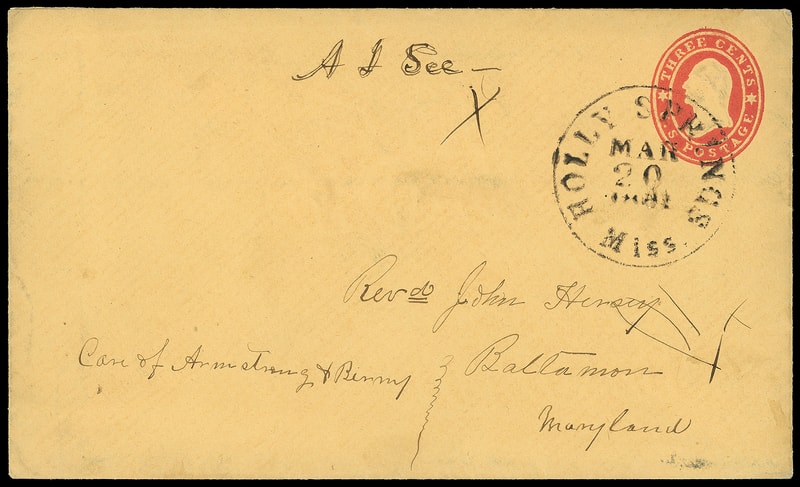 A J See —
THREE CENTS
U.S POSTAGE
HOLLY SPRINGS
MAR
20
1861
Miss.
Revd John Hersey
Care of Armstrong & Berry
Baltamon
Maryland